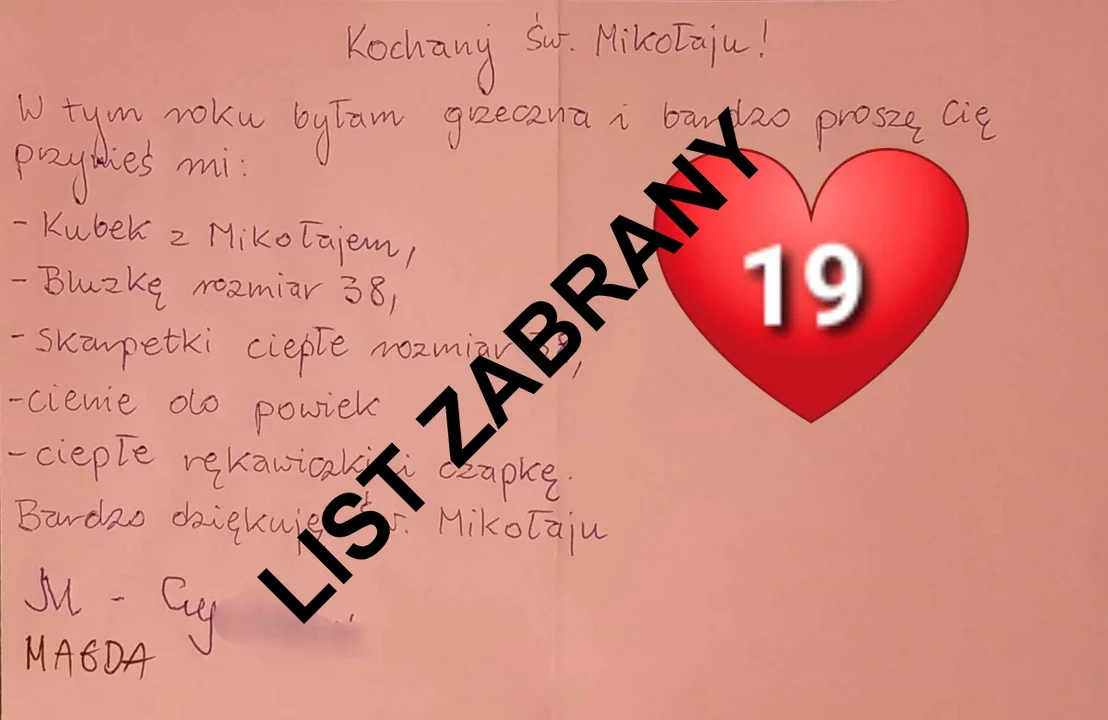 Kochany Św. Mikołaju!
W tym roku byłam grzeczna i bardzo proszę Cię
przynieś mi:
- Kubek z Mikołajem,
- Bluzkę rozmiar 38,
- Skarpetki ciepłe rozmiar 38,
- cienie do powiek
- ciepłe rękawiczki i czapkę.
Bardzo dziękuję Św. Mikołaju
M - Cy
MAGDA
LIST ZABRANY
19